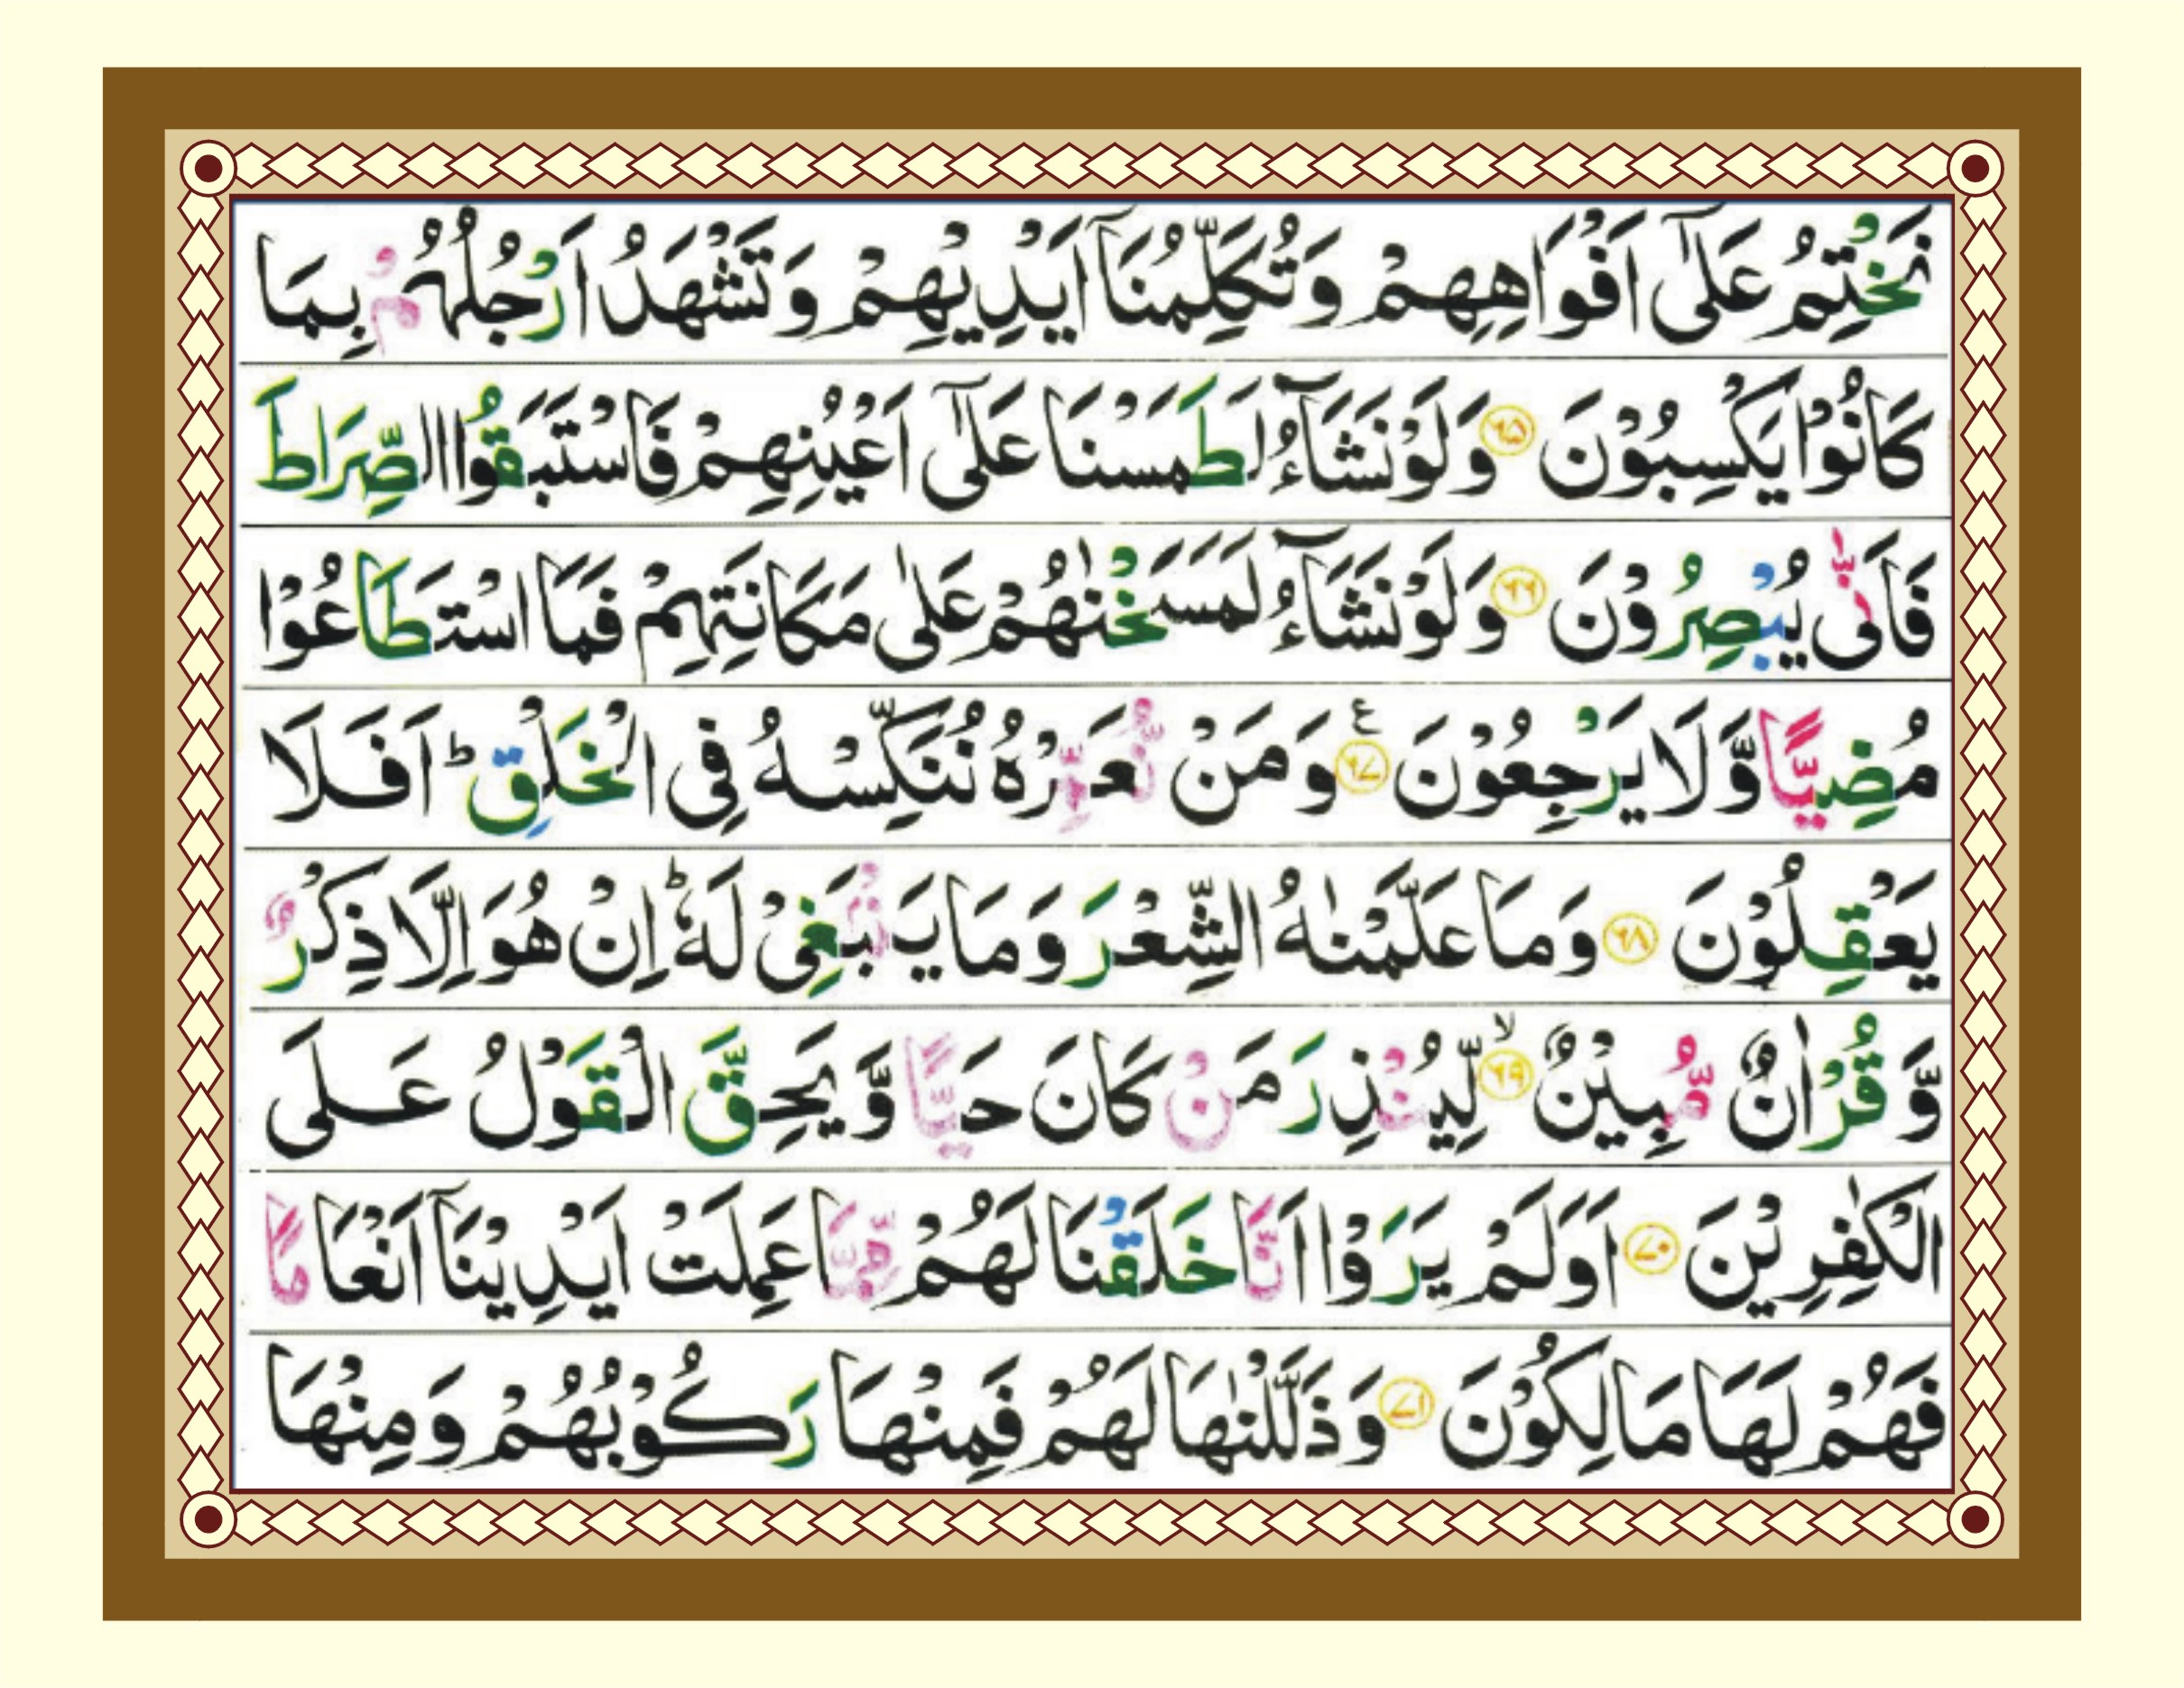 نَخْتِمُ عَلٰٓى اَفْوَاهِهِمْ وَتُكَلِّمُنَاۤ اَيْدِيْهِمْ وَتَشْهَدُ اَرْجُلُهُمْ بِمَا
كَانُوْا يَكْسِبُوْنَ ﴿۶۵﴾ وَلَوْ نَشَآءُ لَطَمَسْنَا عَلٰٓى اَعْيُنِهِمْ فَاسْتَبَقُوا الصِّرَاطَ
فَاَنّٰى يُبْصِرُوْنَ ﴿۶۶﴾ وَلَوْ نَشَآءُ لَمَسَخْنٰهُمْ عَلٰى مَكَانَتِهِمْ فَمَا اسْتَطَاعُوْا
مُضِيًّا وَّلَا يَرْجِعُوْنَ ﴿۶۷﴾ع وَمَنْ نُّعَمِّرْهُ نُنَكِّسْهُ فِى الْخَلْقِ ؕ اَفَلَا
يَعْقِلُوْنَ ﴿۶۸﴾ وَمَا عَلَّمْنٰهُ الشِّعْرَ وَمَا يَنْۢبَغِىْ لَهٗ ؕ اِنْ هُوَ اِلَّا ذِكْرٌ
وَّقُرْاٰنٌ مُّبِيْنٌ ﴿۶۹﴾ۙ لِّيُنْذِرَ مَنْ كَانَ حَيًّا وَّيَحِقَّ الْقَوْلُ عَلَى
الْكٰفِرِيْنَ ﴿۷۰﴾ اَوَلَمْ يَرَوْا اَنَّا خَلَقْنَا لَهُمْ مِّمَّا عَمِلَتْ اَيْدِيْنَاۤ اَنْعَامًا
فَهُمْ لَهَا مَالِكُوْنَ ﴿۷۱﴾ وَذَلَّلْنٰهَا لَهُمْ فَمِنْهَا رَكُوْبُهُمْ وَمِنْهَا